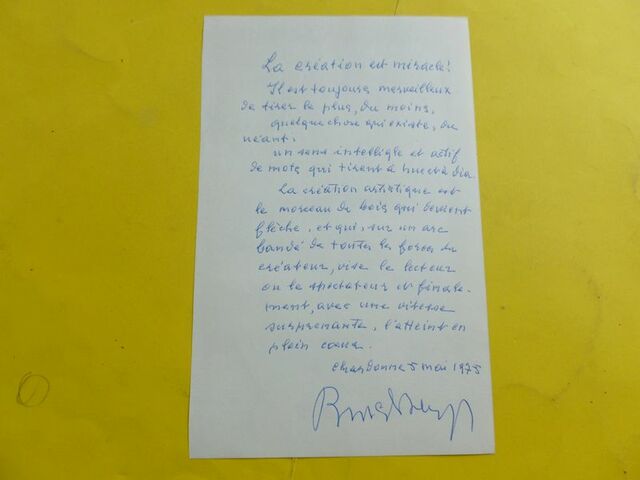 La création est miracle!
Il est toujours merveilleux
de tirer le plus, du moins,
quelque chose qui existe, du
néant.
un sens intelligle et actif
de mots qui tirent à hue et à dia.
La création artistique est
le morceau de bois qui devient
flèche, et qui, sur un arc
bandé de toutes les forces du
créateur, vise le lecteur
ou le spectateur et finale-
ment, avec une vitesse
surprenante, l'atteint en
plein coeur.
Chardonne 5 mai 1975